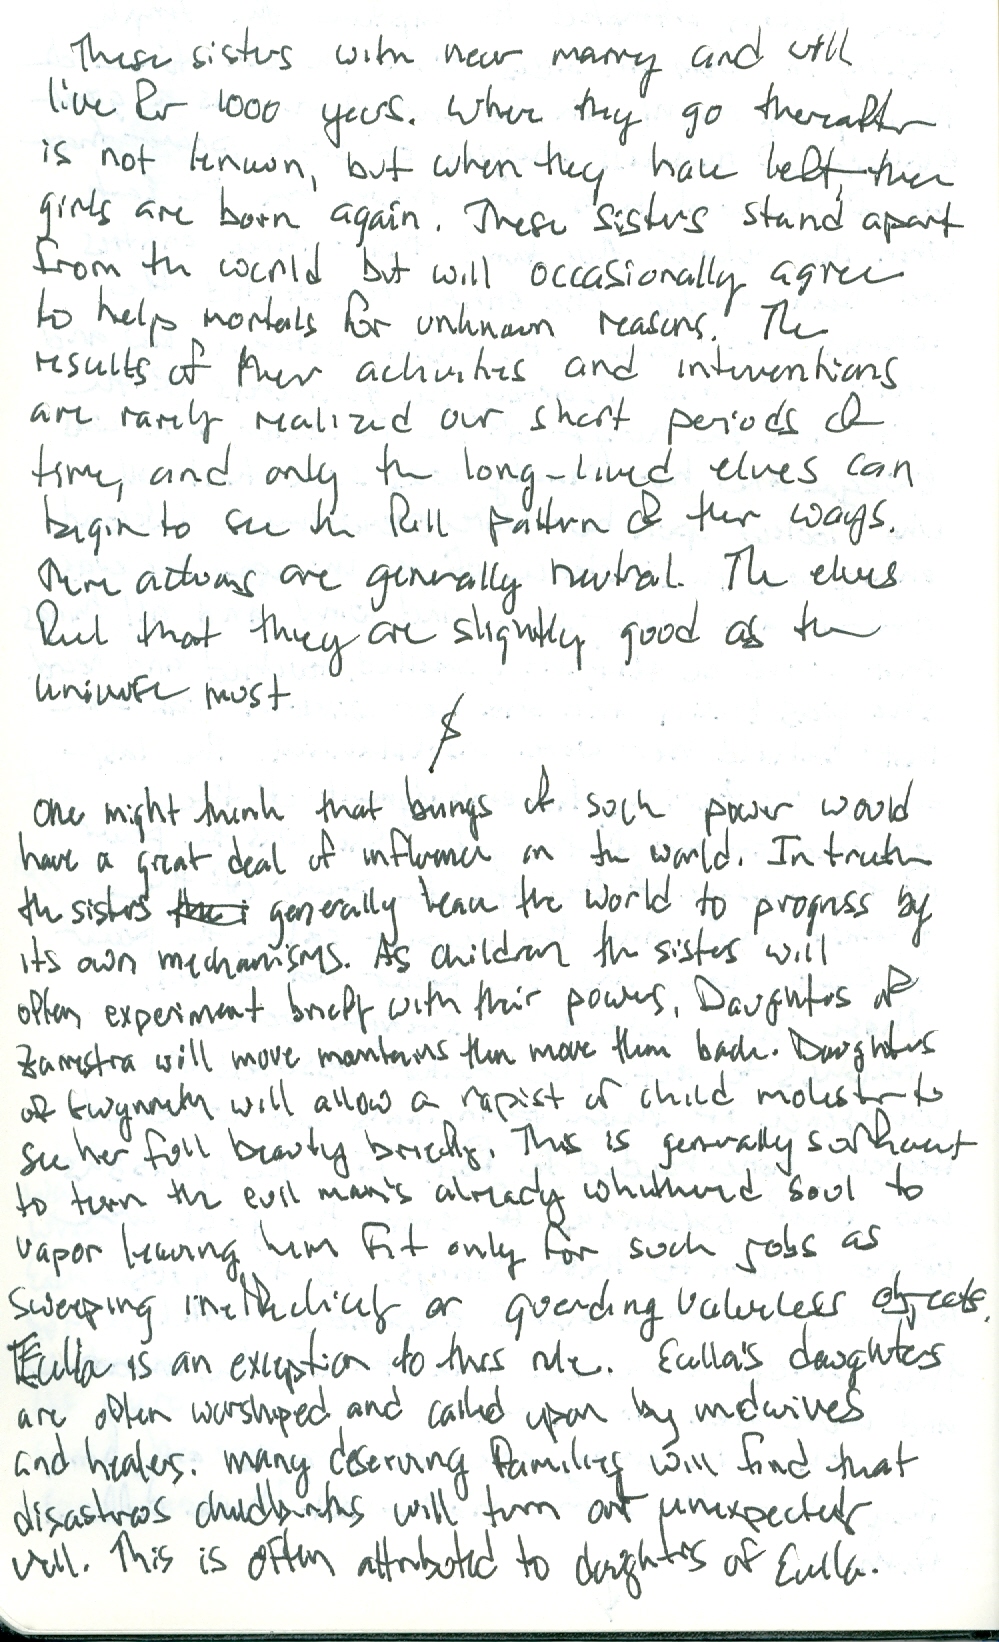 These sisters will never marry and will
live for 1000 years. Where they go thereafter
is not known, but when they have left, three
girls are born again. These sisters stand apart
from the world but will occasionally agree
to help mortals for unknown reasons. The
results of their activities and interventions
are rarely realized over short periods of
time, and only the long-lived elves can
begin to see the full pattern of their ways.
There actions are generally neutral. The elves
feel that they are slightly good as the
universe must
$
One might think that beings of such power would
have a great deal of influence on the world. In truth
the sisters generally leave the world to progress by
its own mechanisms. As children the sisters will
often experiment briefly with their powers. Daughters of
Zamestra will move mountains then move them back. Daughters
of Gwynneth will allow a rapist or child molester to
see her full beauty briefly. This is generally sufficient
to turn the evil man's already whithered soul to
vapor leaving him fit only for such jobs as
sweeping ineffectively or guarding valueless objects.
Eulla is an exception to this rule. Eulla's daughters
are often worshiped and called upon by midwives
and healers. Many deserving families will find that
disastrous childbirths will turn out unexpectedly
well. This is often attributed to daughters of Eulla.